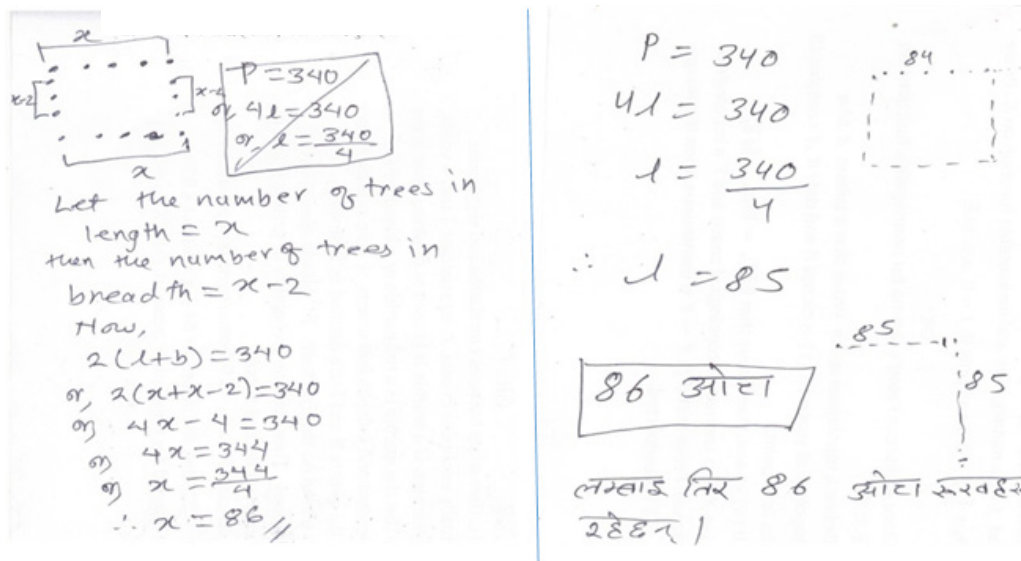 x
x-2
x-2
x
P = 340
or, 4l = 340
or, l = 340/4
Let the number of trees in
length = x
then the number of trees in
breadth = x-2
Now,
2(l+b) = 340
or, 2(x+x-2) = 340
or, 4x-4 = 340
or, 4x = 344
or, x = 344/4
∴ x = 86
P = 340
4l = 340
l = 340/4
∴ l = 85
84
85
85
86 ओटा
लम्बाइ तिर 86 ओटा रूखहरू
रहेछन् ।